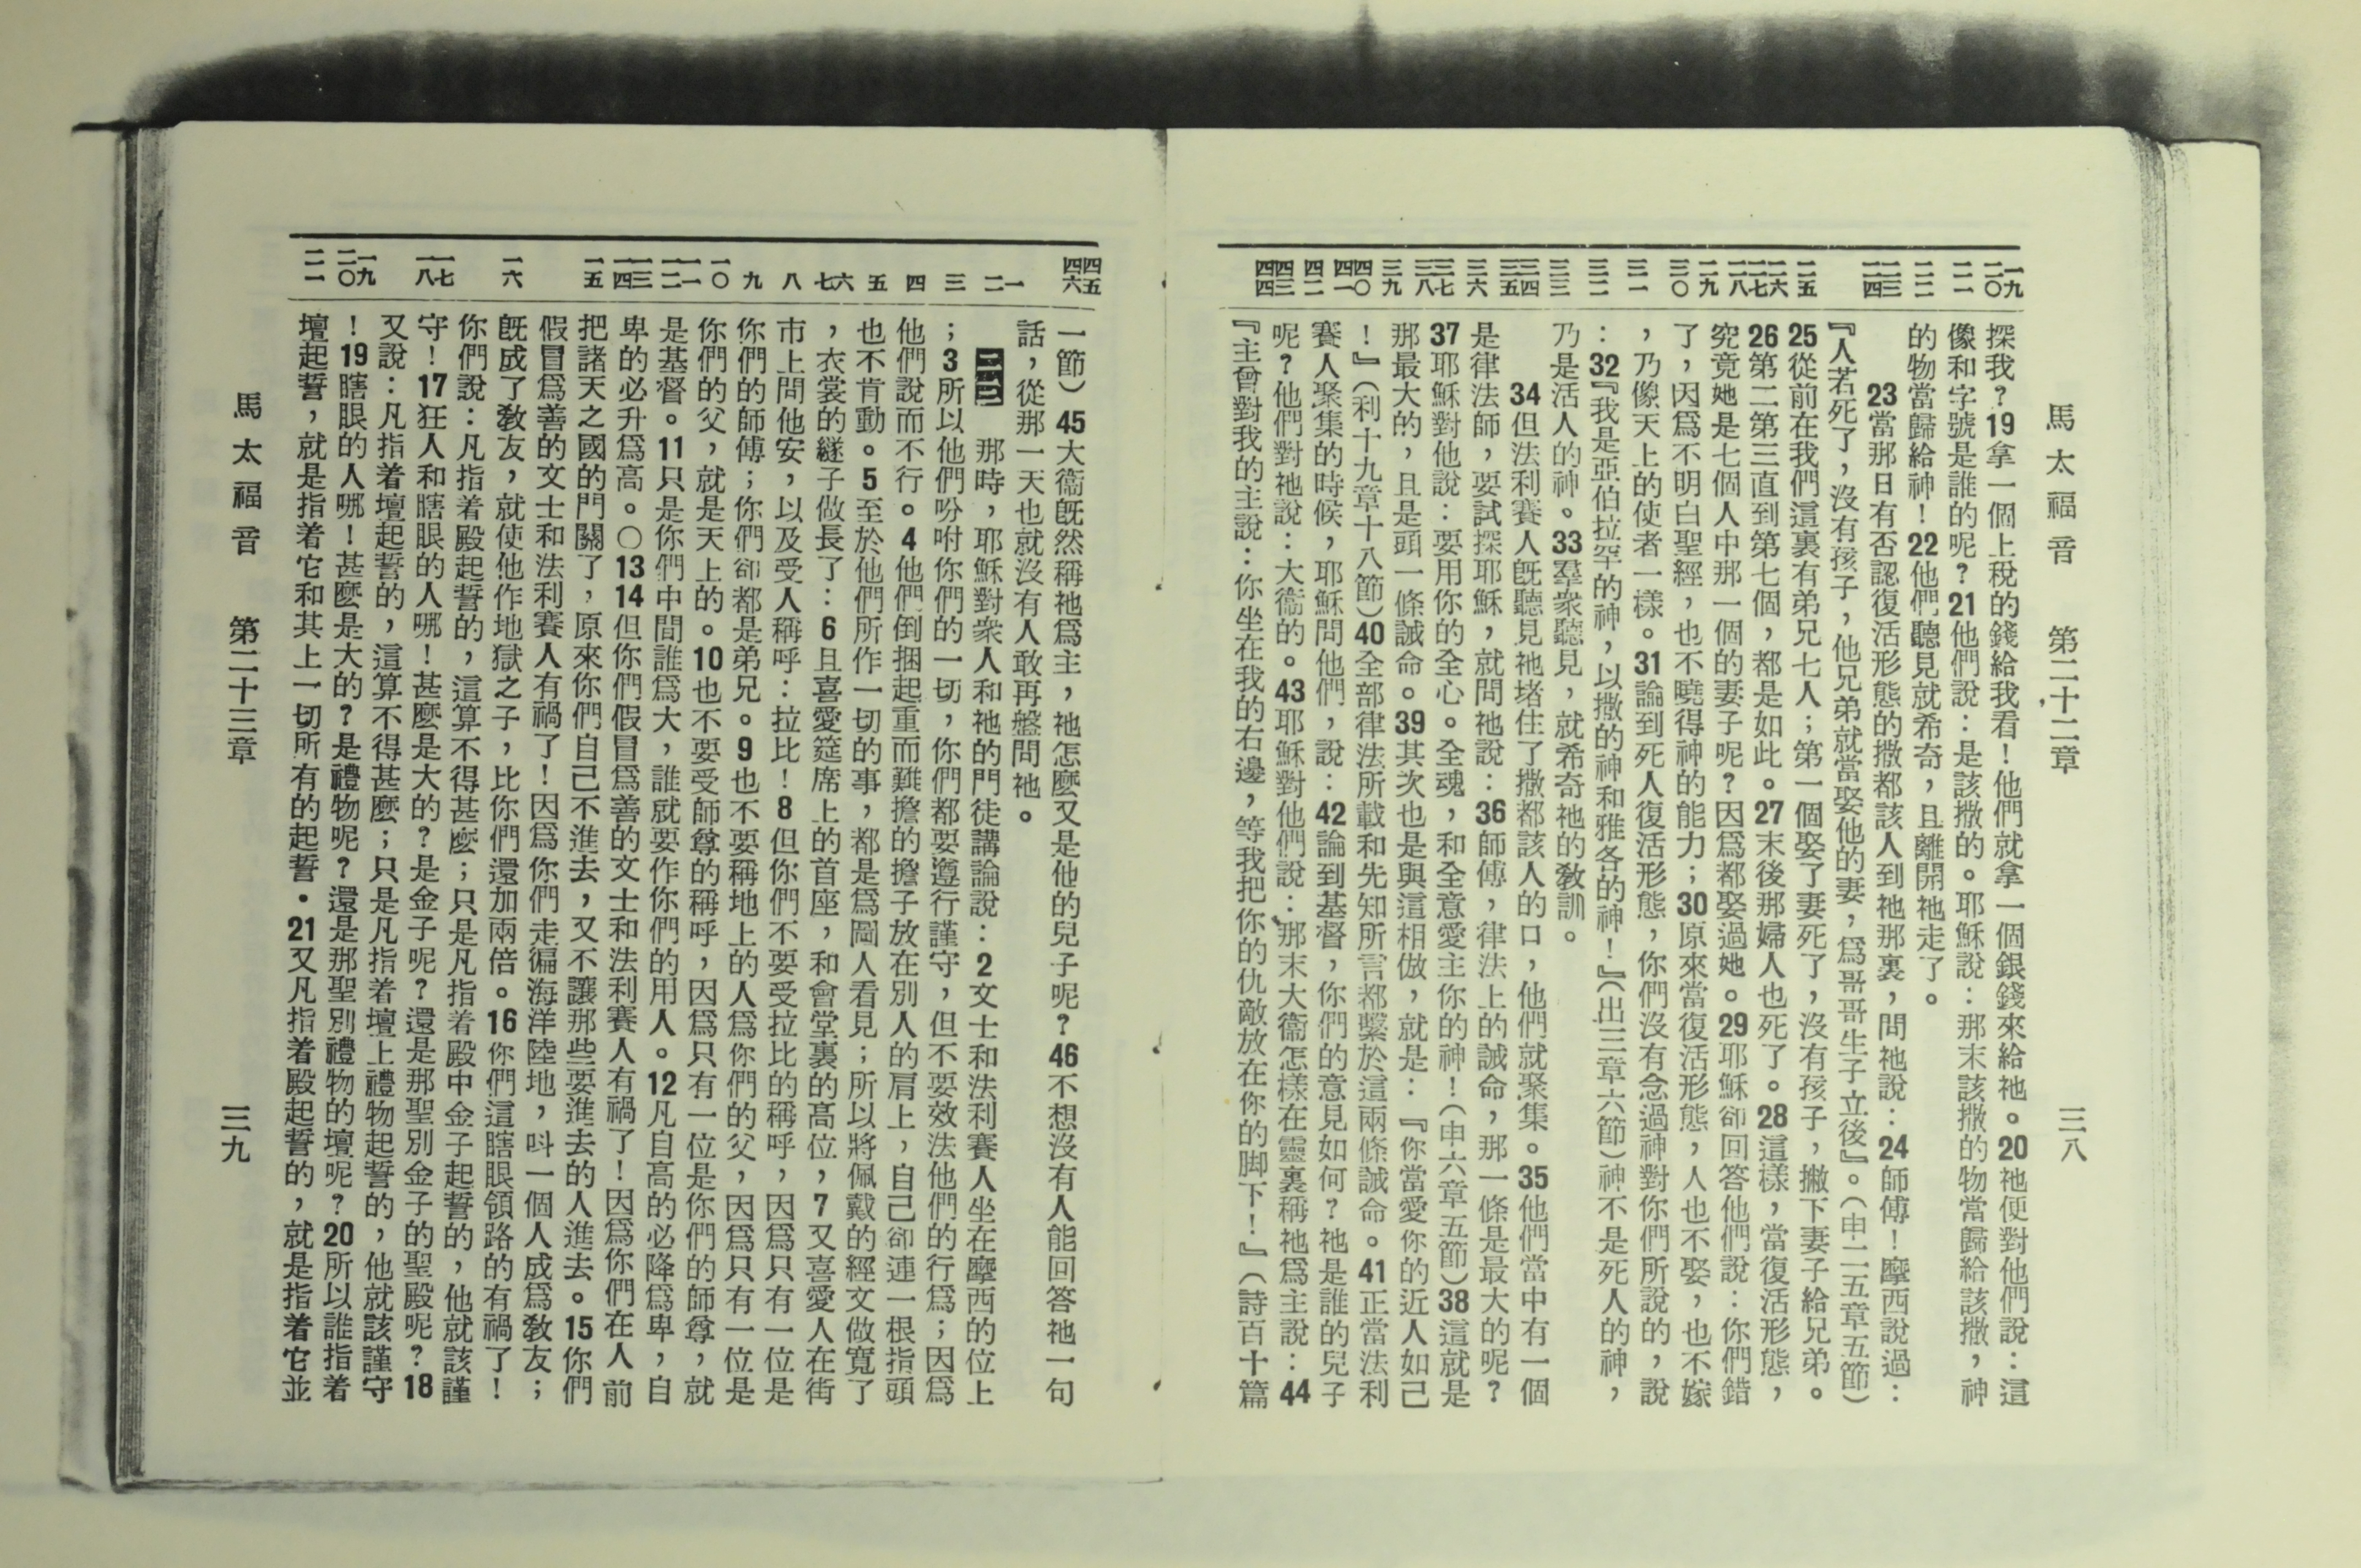 馬太福音　第二十二章　三八
一九 二〇 二一 二二 二三 二四 二五 二六 二七 二八 二九 三〇 三一 三二 三三 三四 三五 三六 三七 三八 三九 四〇 四一 四二 四三 四四
探我？19拿一個上稅的錢給我看！他們就拿一個銀錢來給祂。20祂便對他們說：這
像和字號是誰的呢？21他們說：是該撒的。耶穌說：那末該撒的物當歸給該撒，神
的物當歸給神！22他們聽見就希奇，且離開祂走了。
23當那日有否認復活形態的撒都該人到祂那裏，問祂說：24師傅！摩西說過：
『人若死了，沒有孩子，他兄弟就當娶他的妻，爲哥哥生子立後』。（申二五章五節）
25從前在我們這裏有弟兄七人；第一個娶了妻死了，沒有孩子，撇下妻子給兄弟。
26第二第三直到第七個，都是如此。27末後那婦人也死了。28這樣，當復活形態，
究竟她是七個人中那一個的妻子呢？因爲都娶過她。29耶穌卻回答他們說：你們錯
了，因爲不明白聖經，也不曉得神的能力；30原來當復活形態，人也不娶，也不嫁
，乃像天上的使者一樣。31論到死人復活形態，你們沒有念過神對你們所說的，說
：32『我是亞伯拉罕的神，以撒的神和雅各的神！』（出三章六節）神不是死人的神，
乃是活人的神。33羣衆聽見，就希奇祂的教訓。
34但法利賽人旣聽見祂堵住了撒都該人的口，他們就聚集。35他們當中有一個
是律法師，要試探耶穌，就問祂說：36師傅，律法上的誡命，那一條是最大的呢？
37耶穌對他說：要用你的全心。全魂，和全意愛主你的神！（申六章五節）38這就是
那最大的，且是頭一條誡命。39其次也是與這相倣，就是：『你當愛你的近人如己
！』（利十九章十八節）40全部律法所載和先知所言都繫於這兩條誡命。41正當法利
賽人聚集的時候，耶穌問他們，說：42論到基督，你們的意見如何？祂是誰的兒子
呢？他們對祂說：大衞的。43耶穌對他們說：那末大衞怎樣在靈裏稱祂爲主說：44
『主曾對我的主說：你坐在我的右邊，等我把你的仇敵放在你的脚下！』（詩百十篇
四五 四六 一 二 三 四 五 六 七 八 九 一〇 一一 一二 一三 一四 一五 一六 一七 一八 一九 二〇 二一
一節）45大衞旣然稱祂爲主，祂怎麼又是他的兒子呢？46不想沒有人能回答祂一句
話，從那一天也就沒有人敢再盤問祂。
二三　那時，耶穌對衆人和祂的門徒講論說：2文士和法利賽人坐在摩西的位上
；3所以他們吩咐你們的一切，你們都要遵行謹守，但不要效法他們的行爲；因爲
他們說而不行。4他們倒捆起重而難擔的擔子放在別人的肩上，自己卻連一根指頭
也不肯動。5至於他們所作一切的事，都是爲圖人看見；所以將佩戴的經文做寬了
，衣裳的繸子做長了：6且喜愛筵席上的首座，和會堂裏的高位，7又喜愛人在街
市上問他安，以及受人稱呼：拉比！8但你們不要受拉比的稱呼，因爲只有一位是
你們的師傅；你們卻都是弟兄。9也不要稱地上的人爲你們的父，因爲只有一位是
你們的父，就是天上的。10也不要受師尊的稱呼，因爲只有一位是你們的師尊，就
是基督。11只是你們中間誰爲大，誰就要作你們的用人。12凡自高的必降爲卑，自
卑的必升爲高。〇13 14但你們假冒爲善的文士和法利賽人有禍了！因爲你們在人前
把諸天之國的門關了，原來你們自己不進去，又不讓那些要進去的人進去。15你們
假冒爲善的文士和法利賽人有禍了！因爲你們走徧海洋陸地，呌一個人成爲教友；
旣成了教友，就使他作地獄之子，比你們還加兩倍。16你們這瞎眼領路的有禍了！
你們說：凡指着殿起誓的，這算不得甚麼；只是凡指着殿中金子起誓的，他就該謹
守！17狂人和瞎眼的人哪！甚麼是大的？是金子呢？還是那聖別金子的聖殿呢？18
又說：凡指着壇起誓的，這算不得甚麼；只是凡指着壇上禮物起誓的，他就該謹守
！19瞎眼的人哪！甚麼是大的？是禮物呢？還是那聖別禮物的壇呢？20所以誰指着
壇起誓，就是指着它和其上一切所有的起誓・21又凡指着殿起誓的，就是指着它並
馬太福音　第二十三章　三九